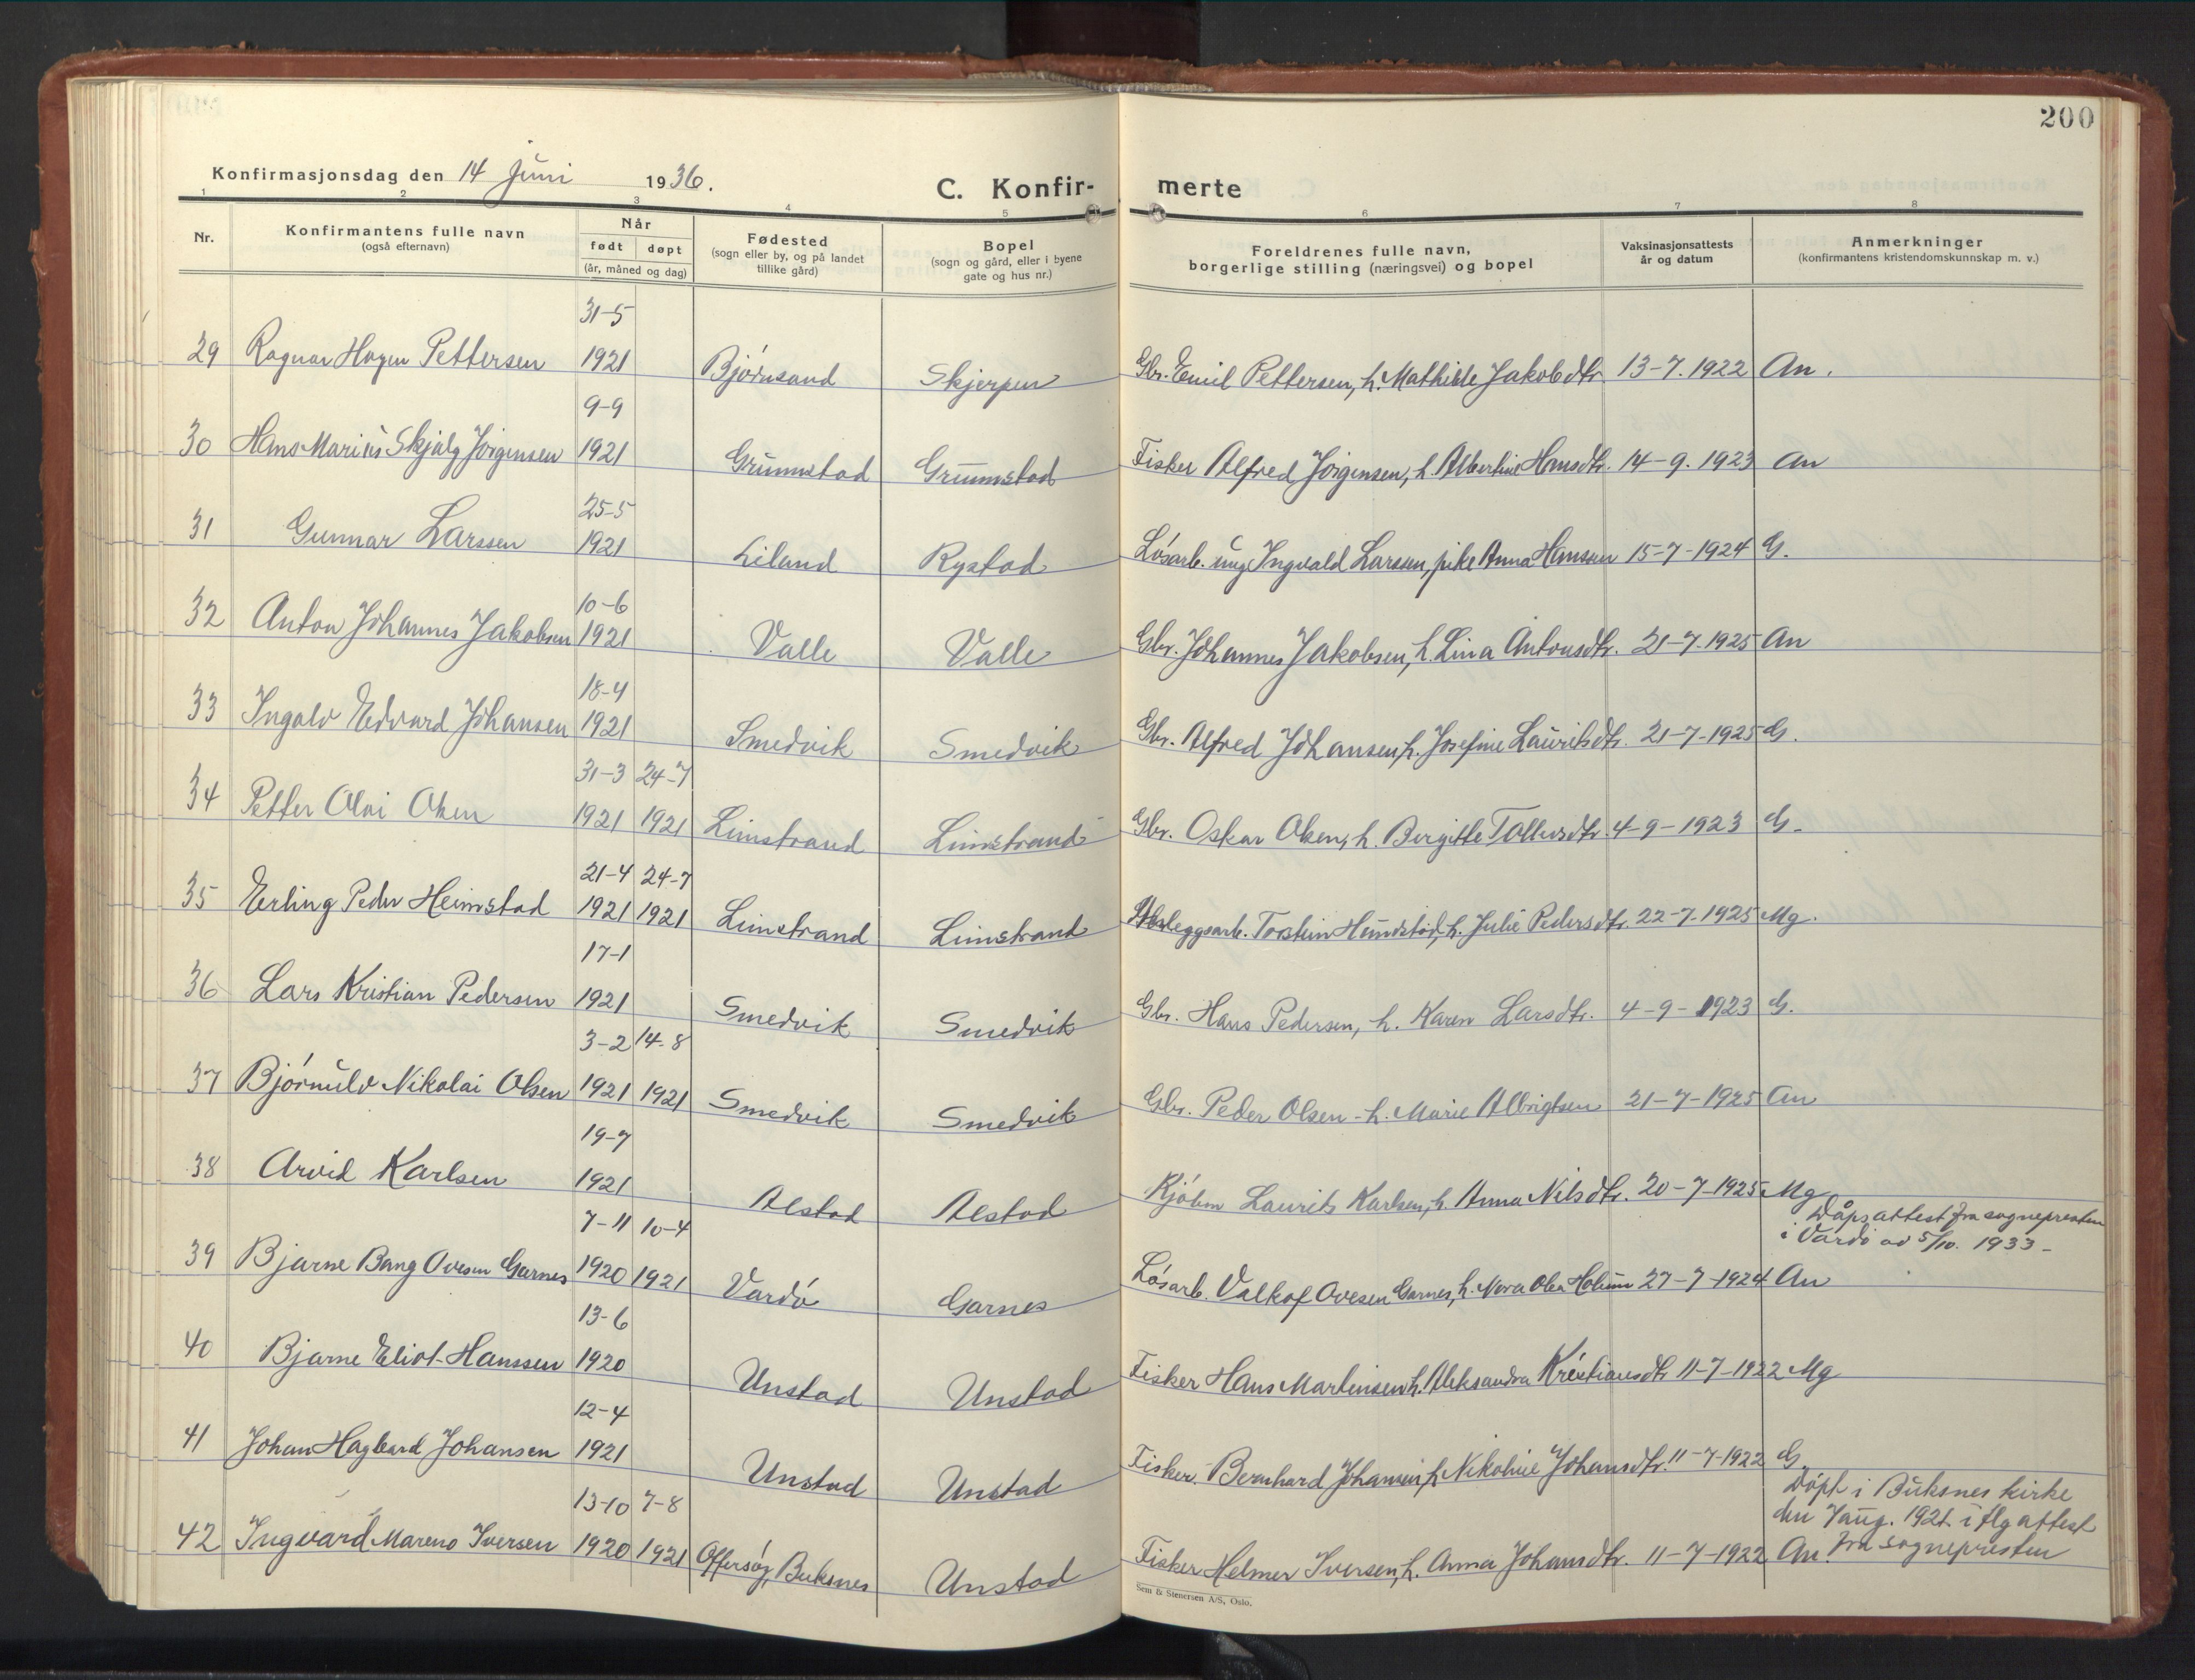 200
Konfirmasjonsdag den 14 Juni 1936.
C. Konfir- merte
1 2 3 4 5 6 7 8
Nr.
Konfirmantens fulle navn
(også efternavn)
Når
født døpt
(år, måned og dag)
Fødested
(sogn eller by, og på landet
tillike gård)
Bopel
(sogn og gård, eller i byene
gate og hus nr.)
Foreldrenes fulle navn,
borgerlige stilling (næringsvei) og bopel
Vaksinasjonsattests
år og datum
Anmerkninger
(konfirmantens kristendomskunnskap m. v.)
31-5
29 Ragnar Hagen Pettersen 1921 Bjørnsand Skjerpen Gbr. Emil Pettersen, h. Mathilde Jakobdtr. 13-7.1922 An.
9-9
30 Hans Marius Skjalg Jørgensen 1921 Grunnstad Grunnstad Fisker Alfred Jørgensen, h. Albertine Hansdtr. 14-9.1923 An
25-5
31 Gunnar Larssen 1921 Liland Rystad Løsarb. ung Ingvald Larssen, pike Anna Hansen 15-7-1924 G.
10-6
32 Anton Johannes Jakobsen 1921 Valle Valle Gbr. Johannes Jakobsen, h. Lina Antonsdtr. 21-7-1925 An
18-4
33 Ingolv Edvard Johansen 1921 Smedvik Smedvik Gbr. Alfred Johansen, h. Josefine Lauritsdtr. 21-7-1925 G.
31-3 24-7
34 Petter Olai Olsen 1921 1921 Limstrand Limstrand Gbr. Oskar Olsen, h. Bergitte Tollevsdtr. 4-9-1923 G.
21-4 24-7
35 Erling Peder Heimstad 1921 1921 Limstrand Limstrand Torstein Heimstad, h. Julie Pedersdtr. 22-7-1925 Mg.
17-1
36 Lars Kristian Pedersen 1921 Smedvik Smedvik Gbr. Hans Pedersen, h. Karen Larsdtr. 4-9-1923 G.
3-2 14-8
37 Bjørnulv Nikolai Olsen 1921 1921 Smedvik Smedvik Gbr. Peder Olsen - h. Marie Albrigtsen 21-7-1925 An
19-7
38 Arvid Karlsen 1921 Alstad Alstad Kjøbm Laurits Karlsen, h. Anna Nilsdtr. 20-7-1925 Mg
7-11 10-4
Dåpsattest fra sognepresten
i Vardø av 5/10. 1933-
39 Bjarne Bang Ovesen Garnes 1920 1921 Vardø Garnes Løsarb. Valkof Ovesen Garnes, h. Nora Holum 27-7-1924 An
13-6
40 Bjarne Eliot Hanssen 1920 Unstad Unstad Fisker Hans Martinsen h. Aleksandra Kristiansdtr 11-7-1922 Mg
12-4
41 Johan Hagbard Johansen 1921 Unstad Unstad Fisker. Bernhard Johansen, h. Nikoline Johansdtr. 11-7-1922 G.
13-10 7-8
Døpt i Buksnes kirke
den 7 aug. 1921 iflg attest
fra sognepresten
42 Ingvard Mareno Iversen 1920 1921 Offersøy, Buksnes Unstad Fisker Helmer Iversen, h. Anna Johansdtr. 11-7-1922 An.
Sem & Stenersen A/S, Oslo.